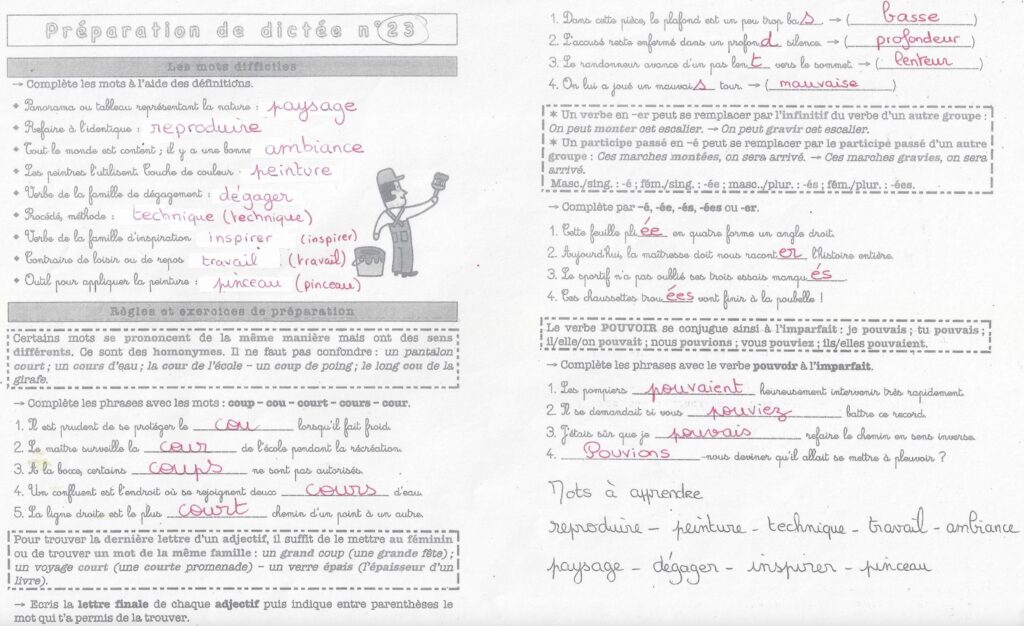 Préparation de dictée n°23
Les mots difficiles
→ Complète les mots à l'aide des définitions.
◆ Panorama ou tableau représentant la nature : paysage
◆ Refaire à l'identique : reproduire
◆ Tout le monde est content ; il y a une bonne ambiance
◆ Les peintres l'utilisent. Couche de couleur : peinture
◆ Verbe de la famille de dégagement : dégager
◆ Procédé, méthode : technique (technique)
◆ Verbe de la famille d'inspiration inspirer (inspirer)
◆ Contraire de loisir ou de repos travail (travail)
◆ Outil pour appliquer la peinture : pinceau (pinceau)
Règles et exercices de préparation
Certains mots se prononcent de la même manière mais ont des sens
différents. Ce sont des homonymes. Il ne faut pas confondre : un pantalon
court ; un cours d'eau ; la cour de l'école – un coup de poing ; le long cou de la
girafe.
→ Complète les phrases avec les mots : coup – cou – court – cours – cour.
1. Il est prudent de se protéger le cou lorsqu'il fait froid.
2. Le maître surveille la cour de l'école pendant la récréation.
3. A la boxe, certains coups ne sont pas autorisés.
4. Un confluent est l'endroit où se rejoignent deux cours d'eau.
5. La ligne droite est le plus court chemin d'un point à un autre.
Pour trouver la dernière lettre d'un adjectif, il suffit de le mettre au féminin
ou de trouver un mot de la même famille : un grand coup (une grande fête) ;
un voyage court (une courte promenade) – un verre épais (l'épaisseur d'un
livre).
→ Ecris la lettre finale de chaque adjectif puis indique entre parenthèses le
mot qui t'a permis de la trouver.
1. Dans cette pièce, le plafond est un peu trop bas → (basse)
2. L'accusé reste enfermé dans un profond silence. → (profondeur)
3. Le randonneur avance d'un pas lent vers le sommet. → (lenteur)
4. On lui a joué un mauvais tour. → (mauvaise)
✶ Un verbe en -er peut se remplacer par l'infinitif du verbe d'un autre groupe :
On peut monter cet escalier. → On peut gravir cet escalier.
✶ Un participe passé en -é peut se remplacer par le participe passé d'un autre
groupe : Ces marches montées, on sera arrivé. → Ces marches gravies, on sera
arrivé.
Masc./sing. : -é ; fém./sing. : -ée ; masc./plur. : -és ; fém./plur. : -ées.
→ Complète par -é, -ée, -és, -ées ou -er.
1. Cette feuille pliée en quatre forme un angle droit.
2. Aujourd'hui, la maîtresse doit nous raconter l'histoire entière.
3. Le sportif n'a pas oublié ses trois essais manqués.
4. Ces chaussettes trouées vont finir à la poubelle !
Le verbe POUVOIR se conjugue ainsi à l'imparfait : je pouvais ; tu pouvais ;
il/elle/on pouvait ; nous pouvions ; vous pouviez ; ils/elles pouvaient.
→ Complète les phrases avec le verbe pouvoir à l'imparfait.
1. Les pompiers pouvaient heureusement intervenir très rapidement.
2. Il se demandait si vous pouviez battre ce record.
3. J'étais sûr que je pouvais refaire le chemin en sens inverse.
4. Pouvions-nous deviner qu'il allait se mettre à pleuvoir ?
Mots à apprendre
reproduire – peinture – technique – travail – ambiance
paysage – dégager – inspirer – pinceau